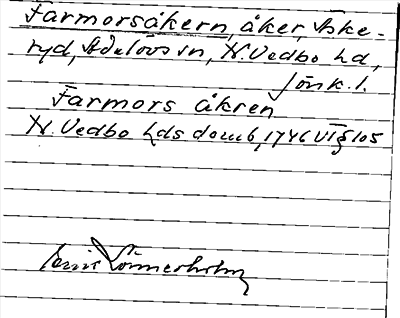 Farmorsåkern, åker, Aske-
ryd, Adelövs sn, N. Vedbo hd,
Jönk. l.
Farmors åkren
N. Vedbo hds domb, 1746 VI § 105